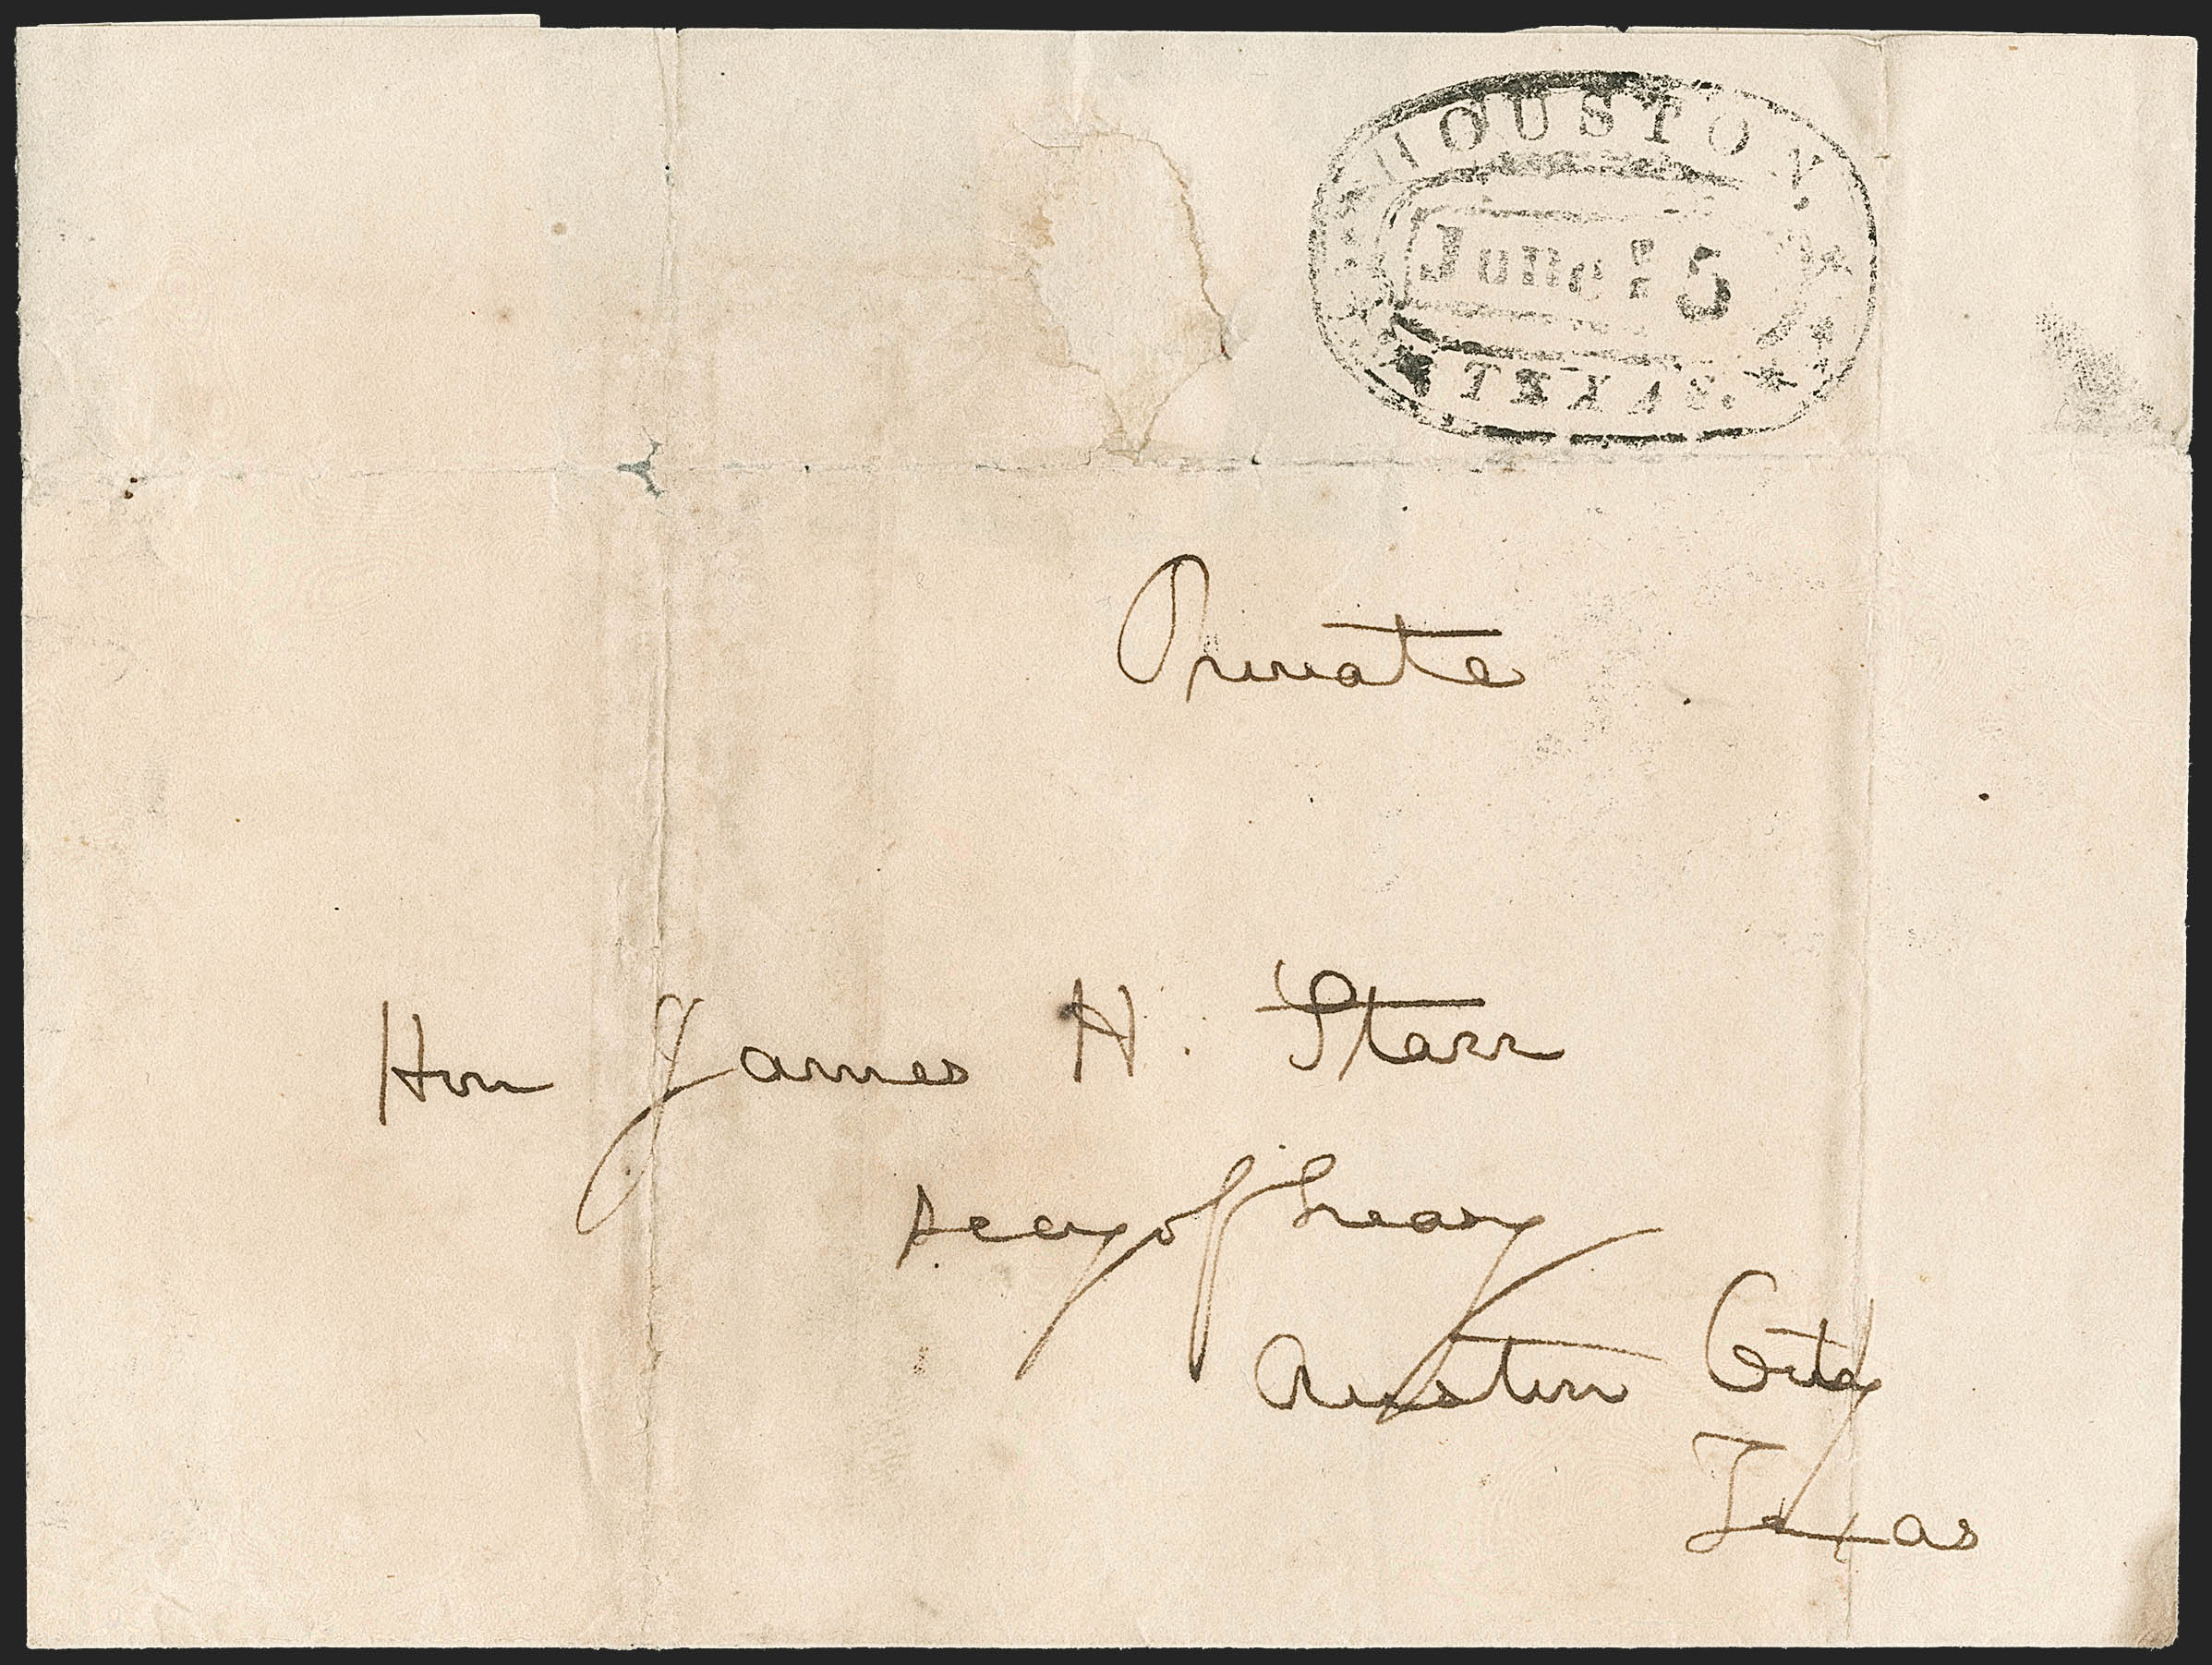 HOUSTON,
June 15
TEXAS.
Private
Hon James H. Starr
Secy of Treasy
Austin City
Texas